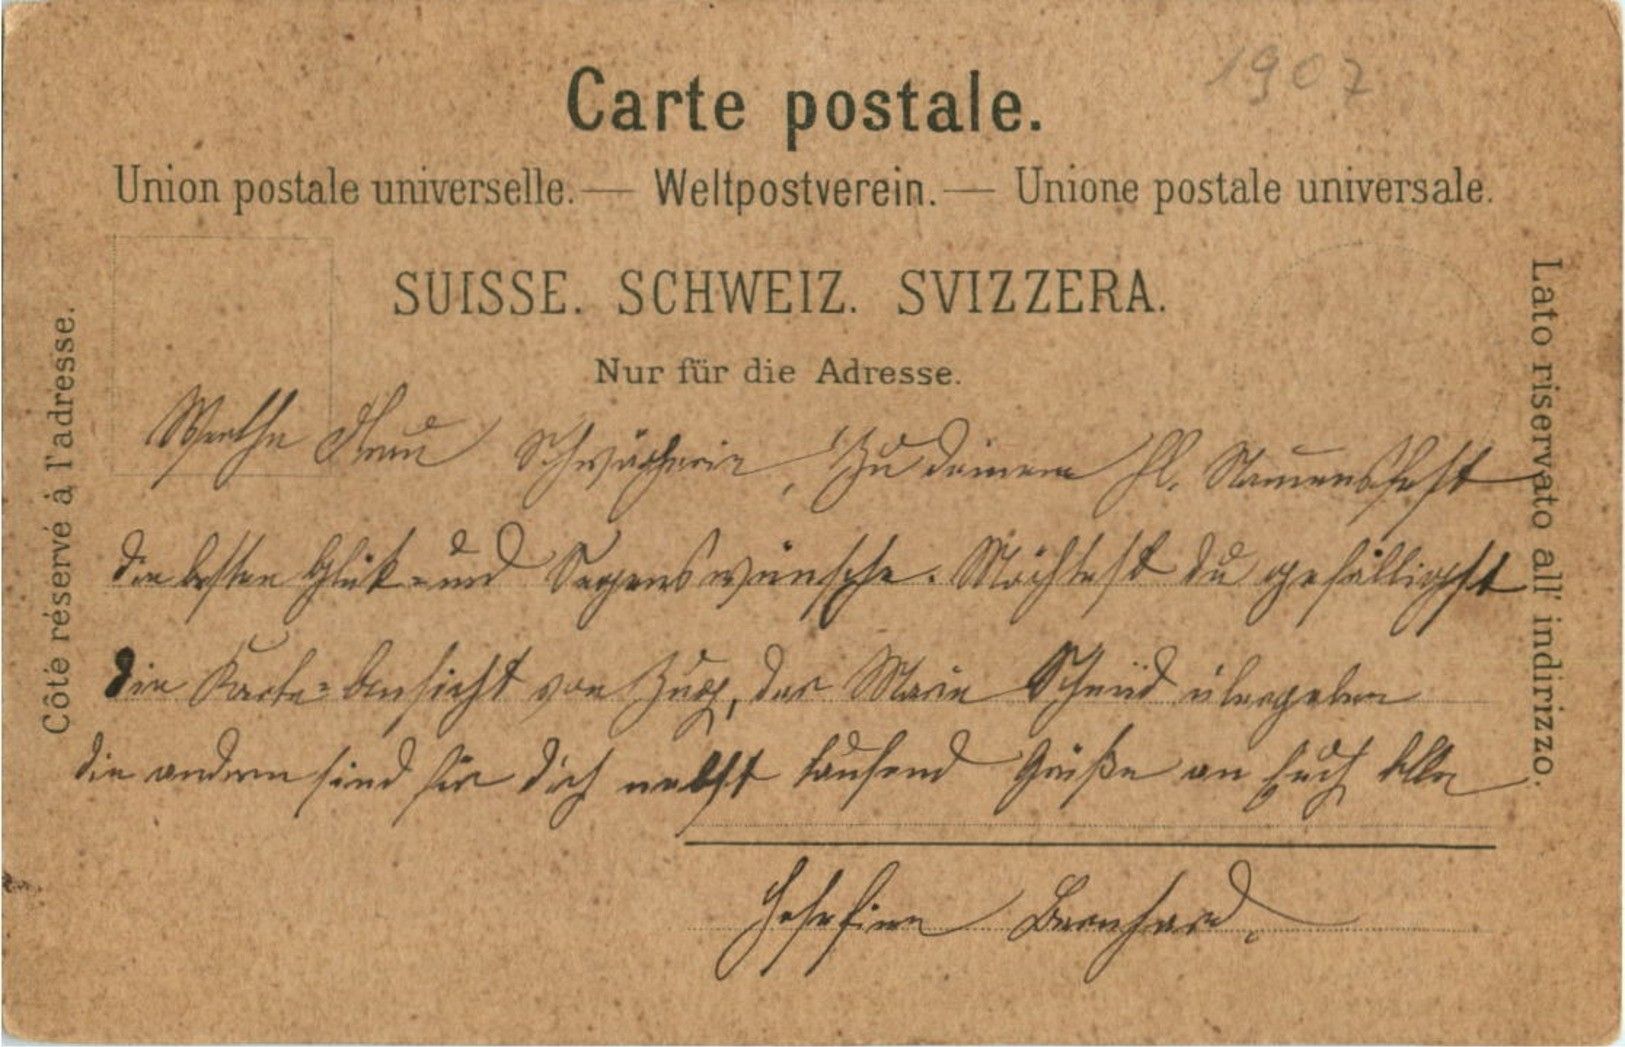 1907
Carte postale.
Union postale universelle. — Weltpostverein. — Unione postale universale.
SUISSE. SCHWEIZ. SVIZZERA.
Nur für die Adresse.
Côté réservé à l'adresse.
Lato riservato all' indirizzo.
Werthe Frau Schwägerin, Zu deinem hl. Namensfest
die besten Glük- und Segenswünsche. Möchtest du gefälligst
die Karte= Ansicht von Zug, der Marie Schmid übergeben
die andern sind für dich nebst tausend Grüße an Euch Alle
Josefine Bernhard.